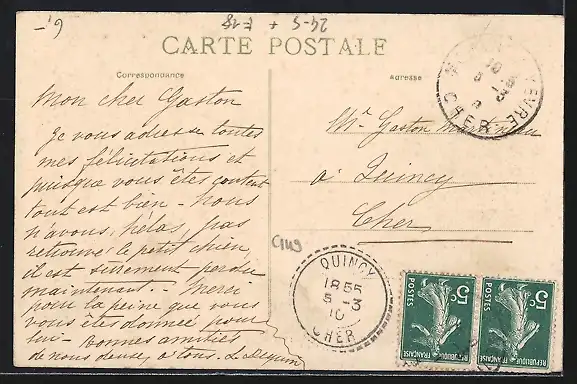 6,-
24-5 + F 18
CARTE POSTALE
Correspondance
Adresse
Mon cher Gaston
Je vous adresse toutes
mes félicitations et
puisque vous êtes content
tout est bien - nous
n'avons, hélas, pas
retrouvé le petit chien,
il est surement perdu
maintenant. - Merci
pour la peine que vous
vous êtes donnée pour
lui - bonnes amitiés
de nous deux, à tous.
Mr Gaston
à Quincy
Cher
EVRE
CHER
QUINCY
18 55
5 -3
10
CHER
5c
POSTES
REPUBLIQUE FRANÇAISE
5c
POSTES
REPUBLIQUE FRANÇAISE